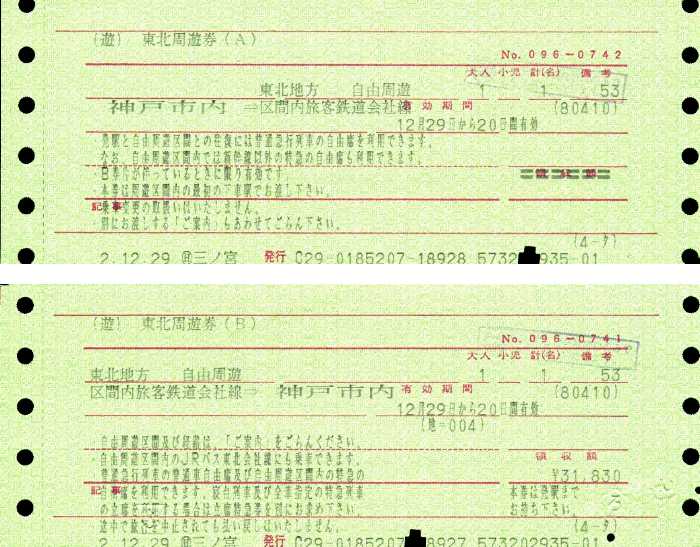 (遊) 東北周遊券(A)
No. 096-0742
大人 小児 計(名) 備考
東北地方 自由周遊 1 1 53
神戸市内 ⇒区間内旅客鉄道会社線 有効期間 (80410)
12月29日から20日間有効
・発駅と自由周遊区間との往復には普通急行列車の自由席を利用できます。
なお、自由周遊区間内では新幹線以外の特急の自由席も利用できます。
・B券片が伴っているときに限り有効です。
・本券は周遊区間内の最初の下車駅でお渡し下さい。
記事
・乗車変更の取扱いはいたしません。
・別にお渡しする「ご案内」もあわせてごらん下さい。
(4-タ)
2.12.29 三ノ宮 発行 C29-0185207-18928 573202935-01
(遊) 東北周遊券(B)
No. 096-0741
大人 小児 計(名) 備考
東北地方 自由周遊 1 1 53
区間内旅客鉄道会社線⇒ 神戸市内 有効期間 (80410)
12月29日から20日間有効
(地=004)
・自由周遊区間及び経路は、「ご案内」をごらんください。
・自由周遊区間内のJRバス東北会社線にも乗車できます。
領収額
・普通急行列車の普通車自由席及び自由周遊区間内の特急の
¥31,830
記事
自由席を利用できます。寝台列車及び全車指定の特急列車
本券は発駅まで
の立席を利用する場合は立席特急券を別にお求め下さい。
お持ち下さい。
・途中で旅行を中止されても払い戻しはいたしません。
(4-タ)
2.12.29 三ノ宮 発行 C29-0185207-18927 573202935-01